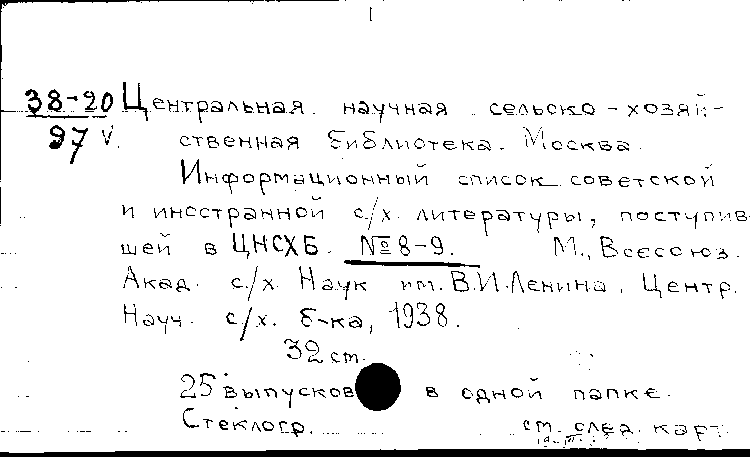 38-20 Центральная научная сельско-хозяй-
97 V. ственная библиотека. Москва.
Информационный список советской
и иностранной с./х. литературы, поступив-
шей в ЦНСХБ. №8-9. М., Всесоюз.
Акад. с./х. Наук им. В.И.Ленина, Центр.
Науч. с/х. б-ка, 1938.
32 ст.
25 выпусков в одной папке.
Стеклогр.
см. след. карт.